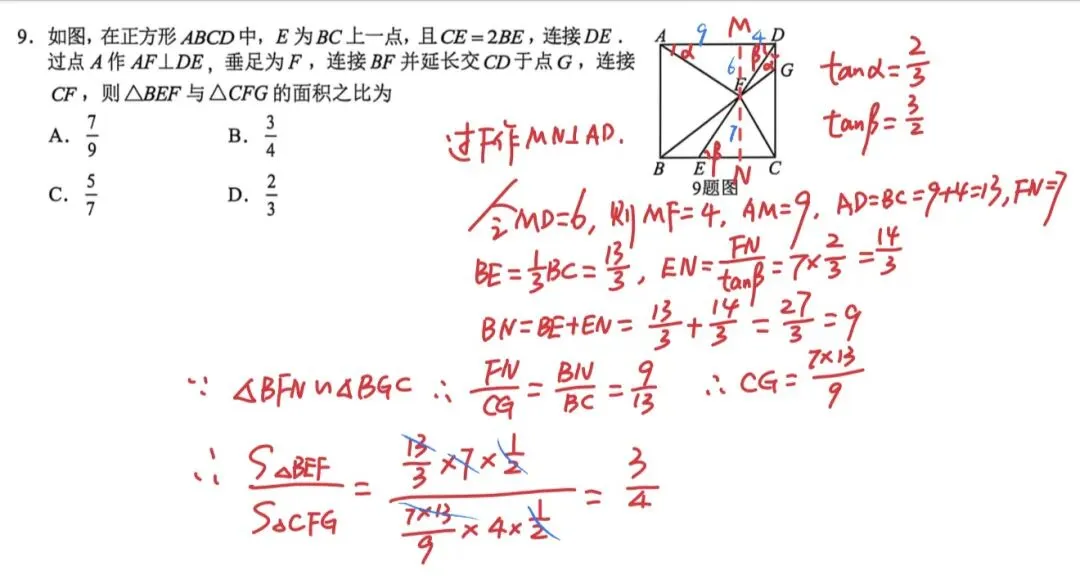 9. 如图,在正方形 ABCD 中,E 为 BC 上一点,且 CE=2BE,连接 DE.
过点 A 作 AF⊥DE,垂足为 F,连接 BF 并延长交 CD 于点 G,连接
CF,则△BEF 与△CFG 的面积之比为
A. 7/9 B. 3/4
C. 5/7 D. 2/3
A 9 M 4 D
α 6 β α G
F
7
β
B E N C
9题图
tanα=2/3
tanβ=3/2
过F作MN⊥AD.
令MD=6, 则MF=4, AM=9, AD=BC=9+4=13, FN=7
BE=1/3BC=13/3, EN=FN/tanβ=7×2/3=14/3
BN=BE+EN=13/3+14/3=27/3=9
∵ △BFN∽△BGC ∴ FN/CG=BN/BC=9/13 ∴ CG=7×13/9
∴ S△BEF/S△CFG=(13/3×7×1/2)/(7×13/9×4×1/2)=3/4